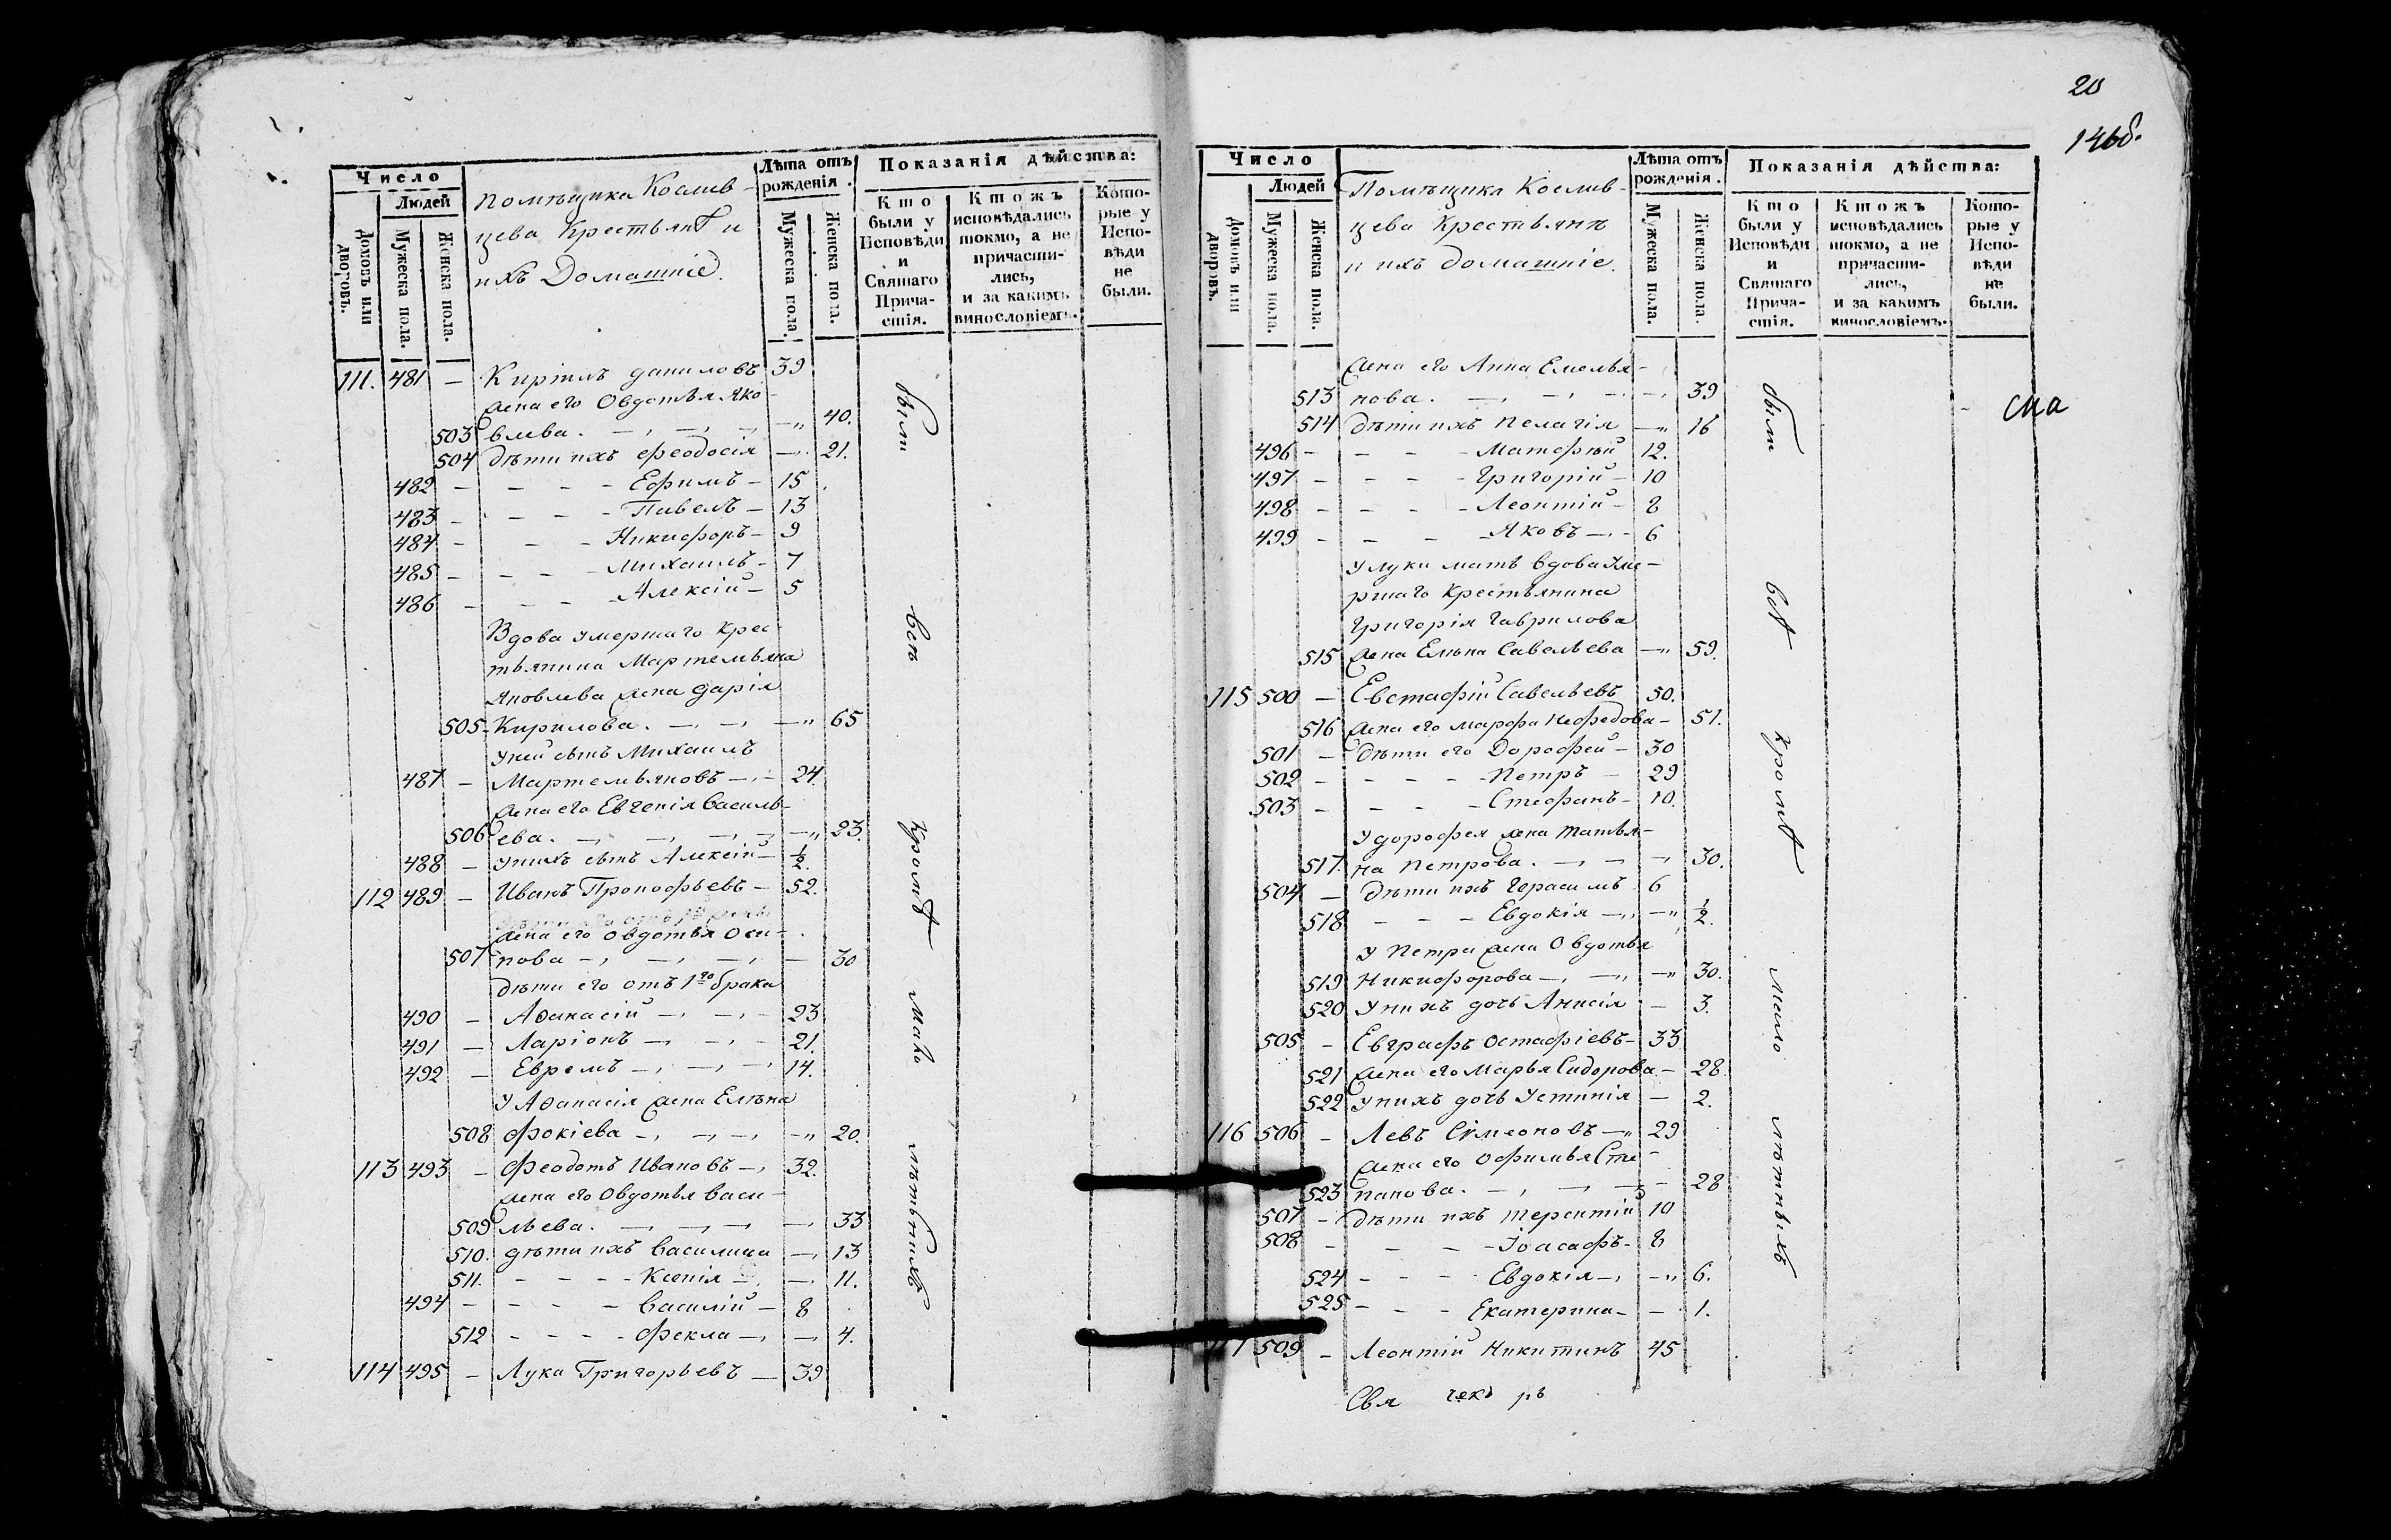 Число
Людей
Домовъ или дворовъ.
Мужеска пола.
Женска пола.
Помѣщика Кослив-
цева Крестьянѣ и
ихъ Домашніе.
Лѣта отъ рожденія.
Мужеска пола.
Женска пола.
Показанія дѣйства:
Кто были у Исповѣди и Святаго Прича-стія.
Ктожъ исповѣдались токмо, а не причасти-лись, и за какимъ винословіемъ.
Кото-рые у Испо-вѣди не были.
111. 481 — Кирилъ Даниловъ 39
жена его Овдотья Яко-
503 влева. — 40.
504 дѣти ихъ Феодосія — 21.
482 — Ефимъ — 15
483 — Павелъ — 13
484 — Никифоръ — 9
485 — Михаилъ — 7
486 — Алексій — 5
Вдова умершаго Крес-
тьянина Мартемьяна
Яковлева жена Дарія
505 Кирилова. — 65
У ней сынъ Михаилъ
487 — Мартемьяновъ — 24.
жена его Евгенія Василь-
506 ева. — 23.
488 — У нихъ сынъ Алексій — ½.
112 489 — Иванъ Прокофьевъ — 52.
жена его Овдотья Оси-
507 пова — 30
дѣти его отъ 1го брака
490 — Аѳанасій — 23
491 — Ларіонъ — 21.
492 — Евремъ — 14.
У Аѳанасія жена Елѣна
508 Фокіева — 20.
113 493 — Феодотъ Ивановъ — 32.
жена его Овдотья Васи-
509 льева. — 33
510. дѣти ихъ Василиса — 13
511. — Ксенія — 11.
494 — Василій — 8
512 — Фекла — 4.
114 495 — Лука Григорьевъ — 39
были всѣ кромѣ мало лѣтнихъ
20
146об.
Число
Людей
Домовъ или дворовъ.
Мужеска пола.
Женска пола.
Помѣщика Кослив-
цева Крестьянѣ
и ихъ домашніе.
Лѣта отъ рожденія.
Мужеска пола.
Женска пола.
Показанія дѣйства:
Кто были у Исповѣди и Святаго Прича-стія.
Ктожъ исповѣдались токмо, а не причасти-лись, и за какимъ винословіемъ.
Кото-рые у Испо-вѣди не были.
жена его Анна Емелья-
513 нова. — 39
514 дѣти ихъ Пелагія — 16
496 — Матфѣй 12.
497 — Григорій — 10
498 — Леонтій — 8
499 — Яковъ — 6
У Луки мать вдова Уме-
ршаго Крестьянина
Григорія Гаврилова
515 жена Елѣна Савельева — 59.
115 500 — Евстафій Савельевъ 50.
516 жена его Марфа Нефедова — 51.
501 — дѣти его Дорофей — 30
502 — Петръ — 29
503 — Стефанъ — 10.
У Дорофея жена Татья-
517. на Петрова. — 30.
504 — дѣти ихъ Герасимъ 6
518 — Евдокія — ½.
У Петра жена Овдотья
519 Никифорова — 30.
520 У нихъ дочь Анисія — 3.
505 — Евграфъ Остафіевъ — 33
521 жена его Марья Сидорова — 28.
522 У нихъ дочь Устинія — 2.
116 506 — Левъ Сѵмеоновъ — 29
жена его Офимья Сте-
523 панова. — 28
507 — дѣти ихъ Терентій 10
508 — Іоасафъ — 8
524 — Евдокія — 6.
525 — Екатерина — 1.
117 509 — Леонтій Никитинъ 45
были всѣ кромѣ мало лѣтныхъ
ска
Свя